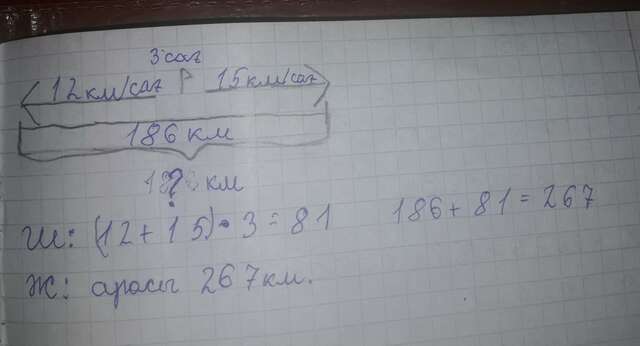 3 сағ
12км/сағ 15км/сағ
186 км
? км
Ш: (12+15)•3=81 186+81=267
Ж: арасы 267км.